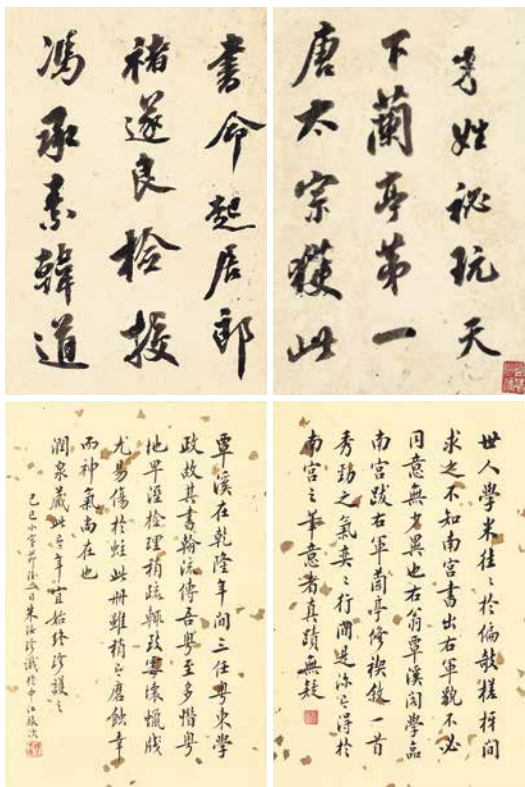 米姓祕玩天
下蘭亭第一
唐太宗獲此
書命起居郎
褚遂良檢挍
馮承素韓道
世人學米往〻於偏敧槎枒間
求之不知南宮書出右軍貌不必
同意無少異也右翁覃溪閣學臨
南宮跋右軍蘭亭修禊敘一首
秀勁之氣奕〻行間是深之得於
南宮之筆意者真蹟無疑
覃溪在乾隆年間三任粵東學
政故其書翰流傳吾粵至多惜粵
地卑溼檢理稍疏輒致霉壞蠟牋
尤易傷於蛀此冊雖稍〻磨蝕幸
而神氣尚在也
潤泉藏此年宜始終珍護之
己巳小寒節後二日朱汝珍識於江旅次